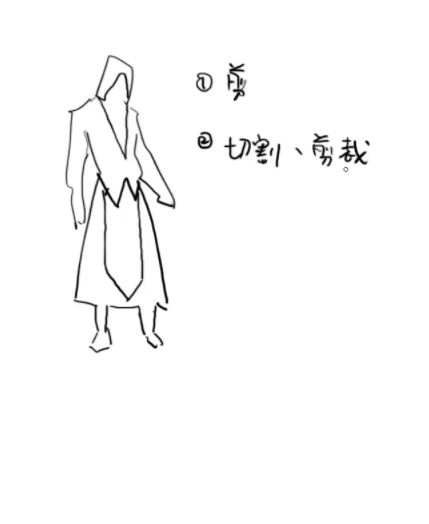 ① 剪
② 切割、剪裁